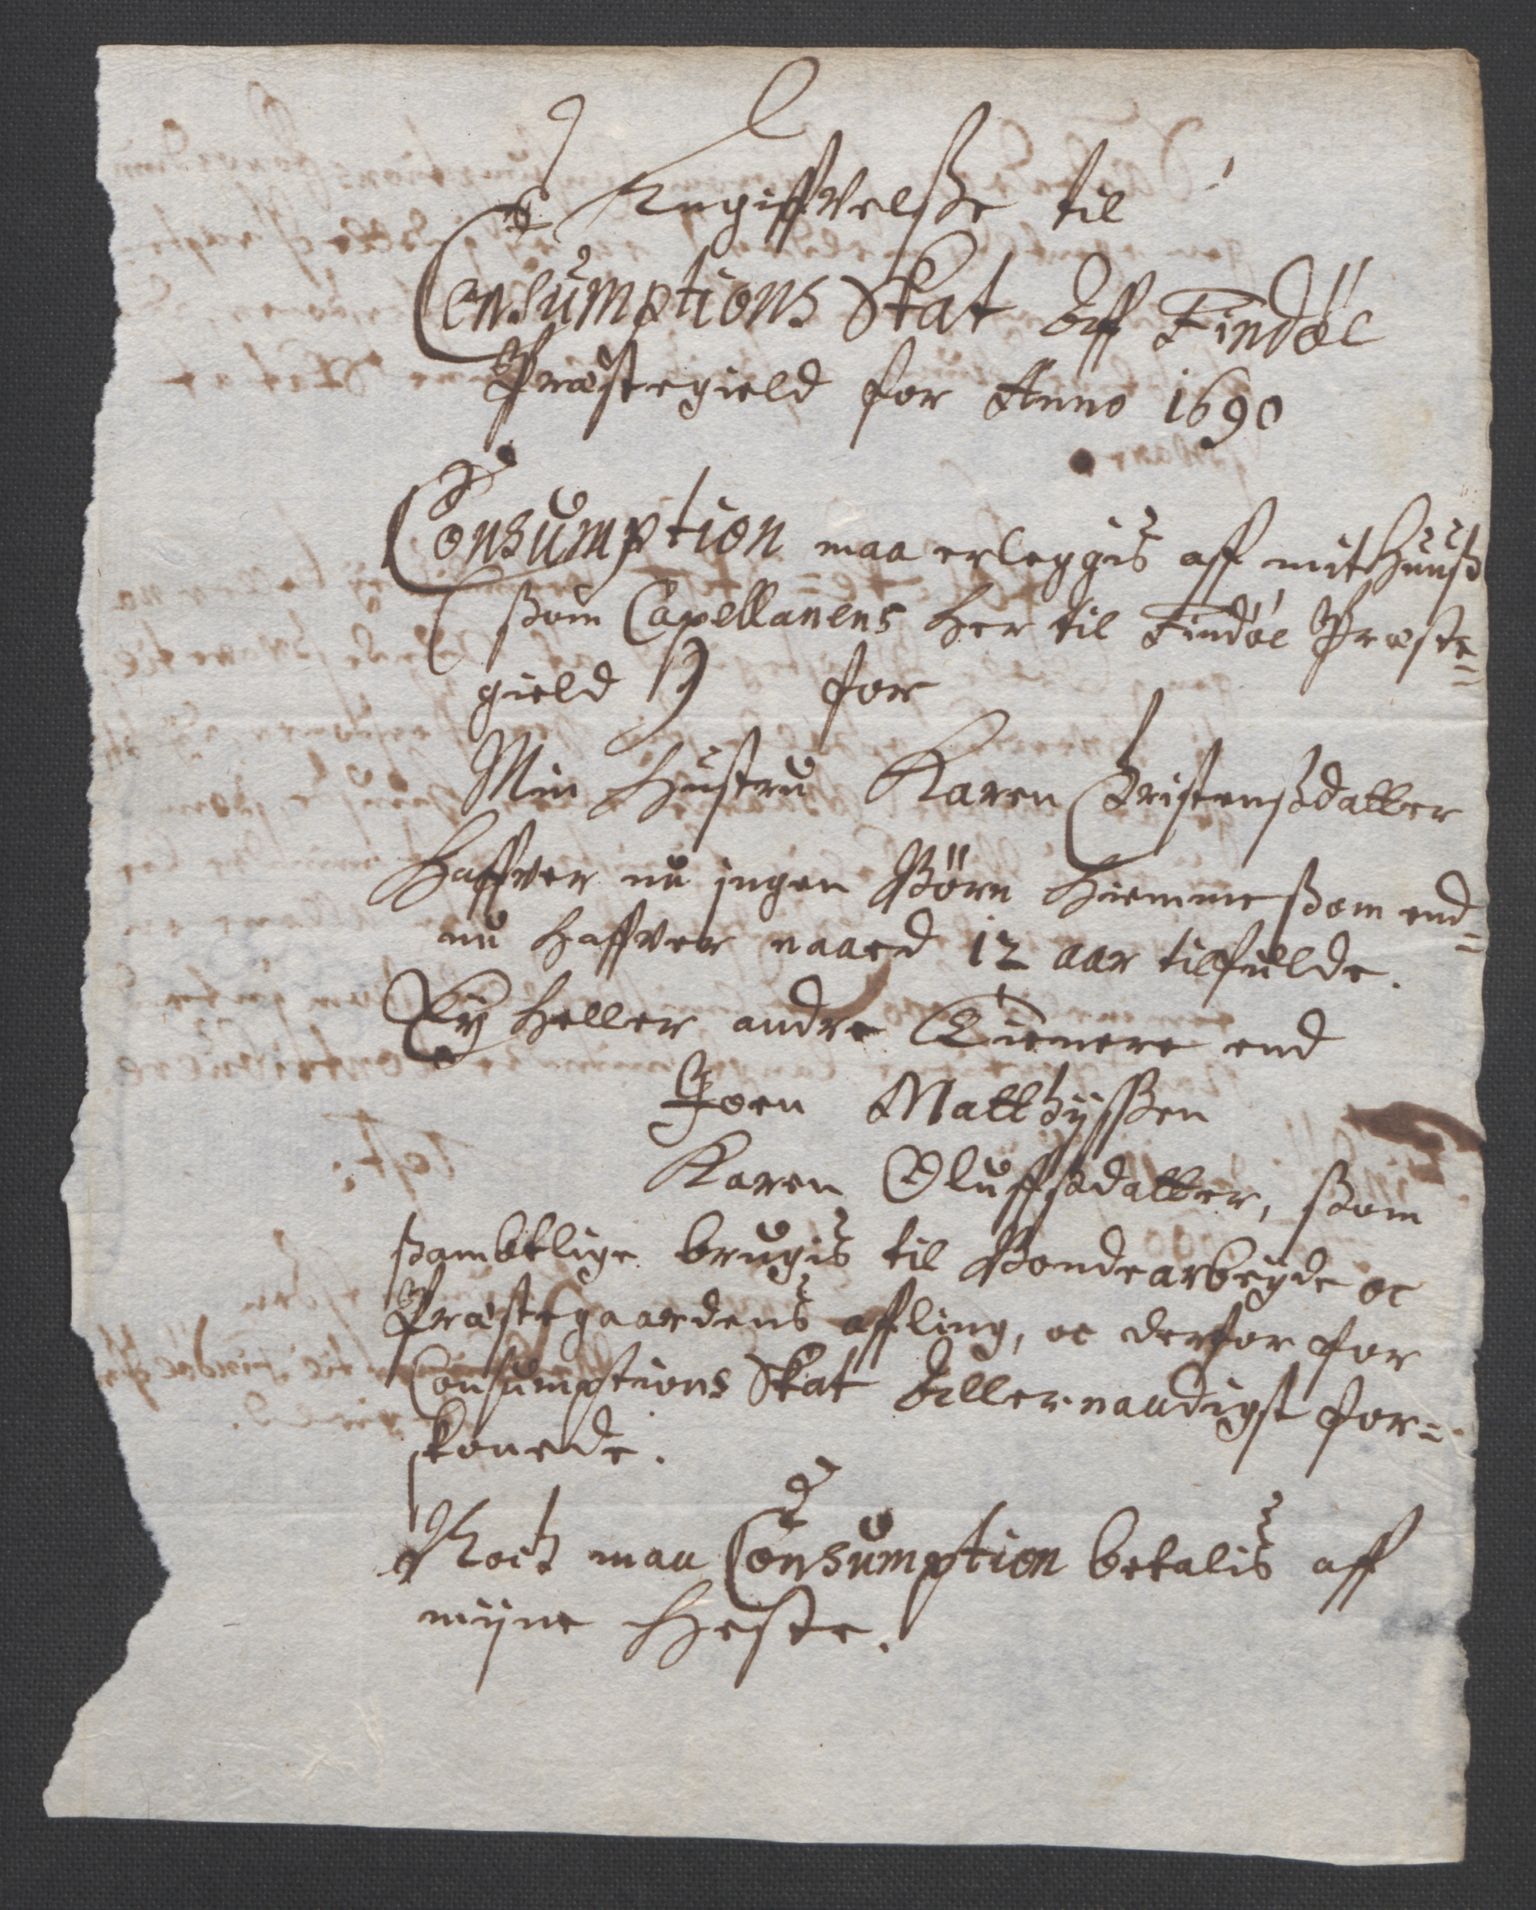 Angiffvelsse til
Consumptions Skat Aff Findøe
Præstegield for Anno 1690
Consumption maa erleggis aff mit Huuss
( ssom Capellanens her til Findøe Præste=
gield ) for
Min Hustru Karen Christenssdatter
Haffver nu ingen Børn hiemme ssom end=
nu haffver naaed 12 aar tilfulde.
Ey heller andre Tienere end
Joen Matthyssen
Karen Oluffssdatter, ssom
ssambtlige brugis til Bondearbeyde oc
Præstegaardens affling, oc derfor for
Consumptions Skat Allernaadigst for=
skonede.
Noch maa Consumption betalis aff
mijne Heste.